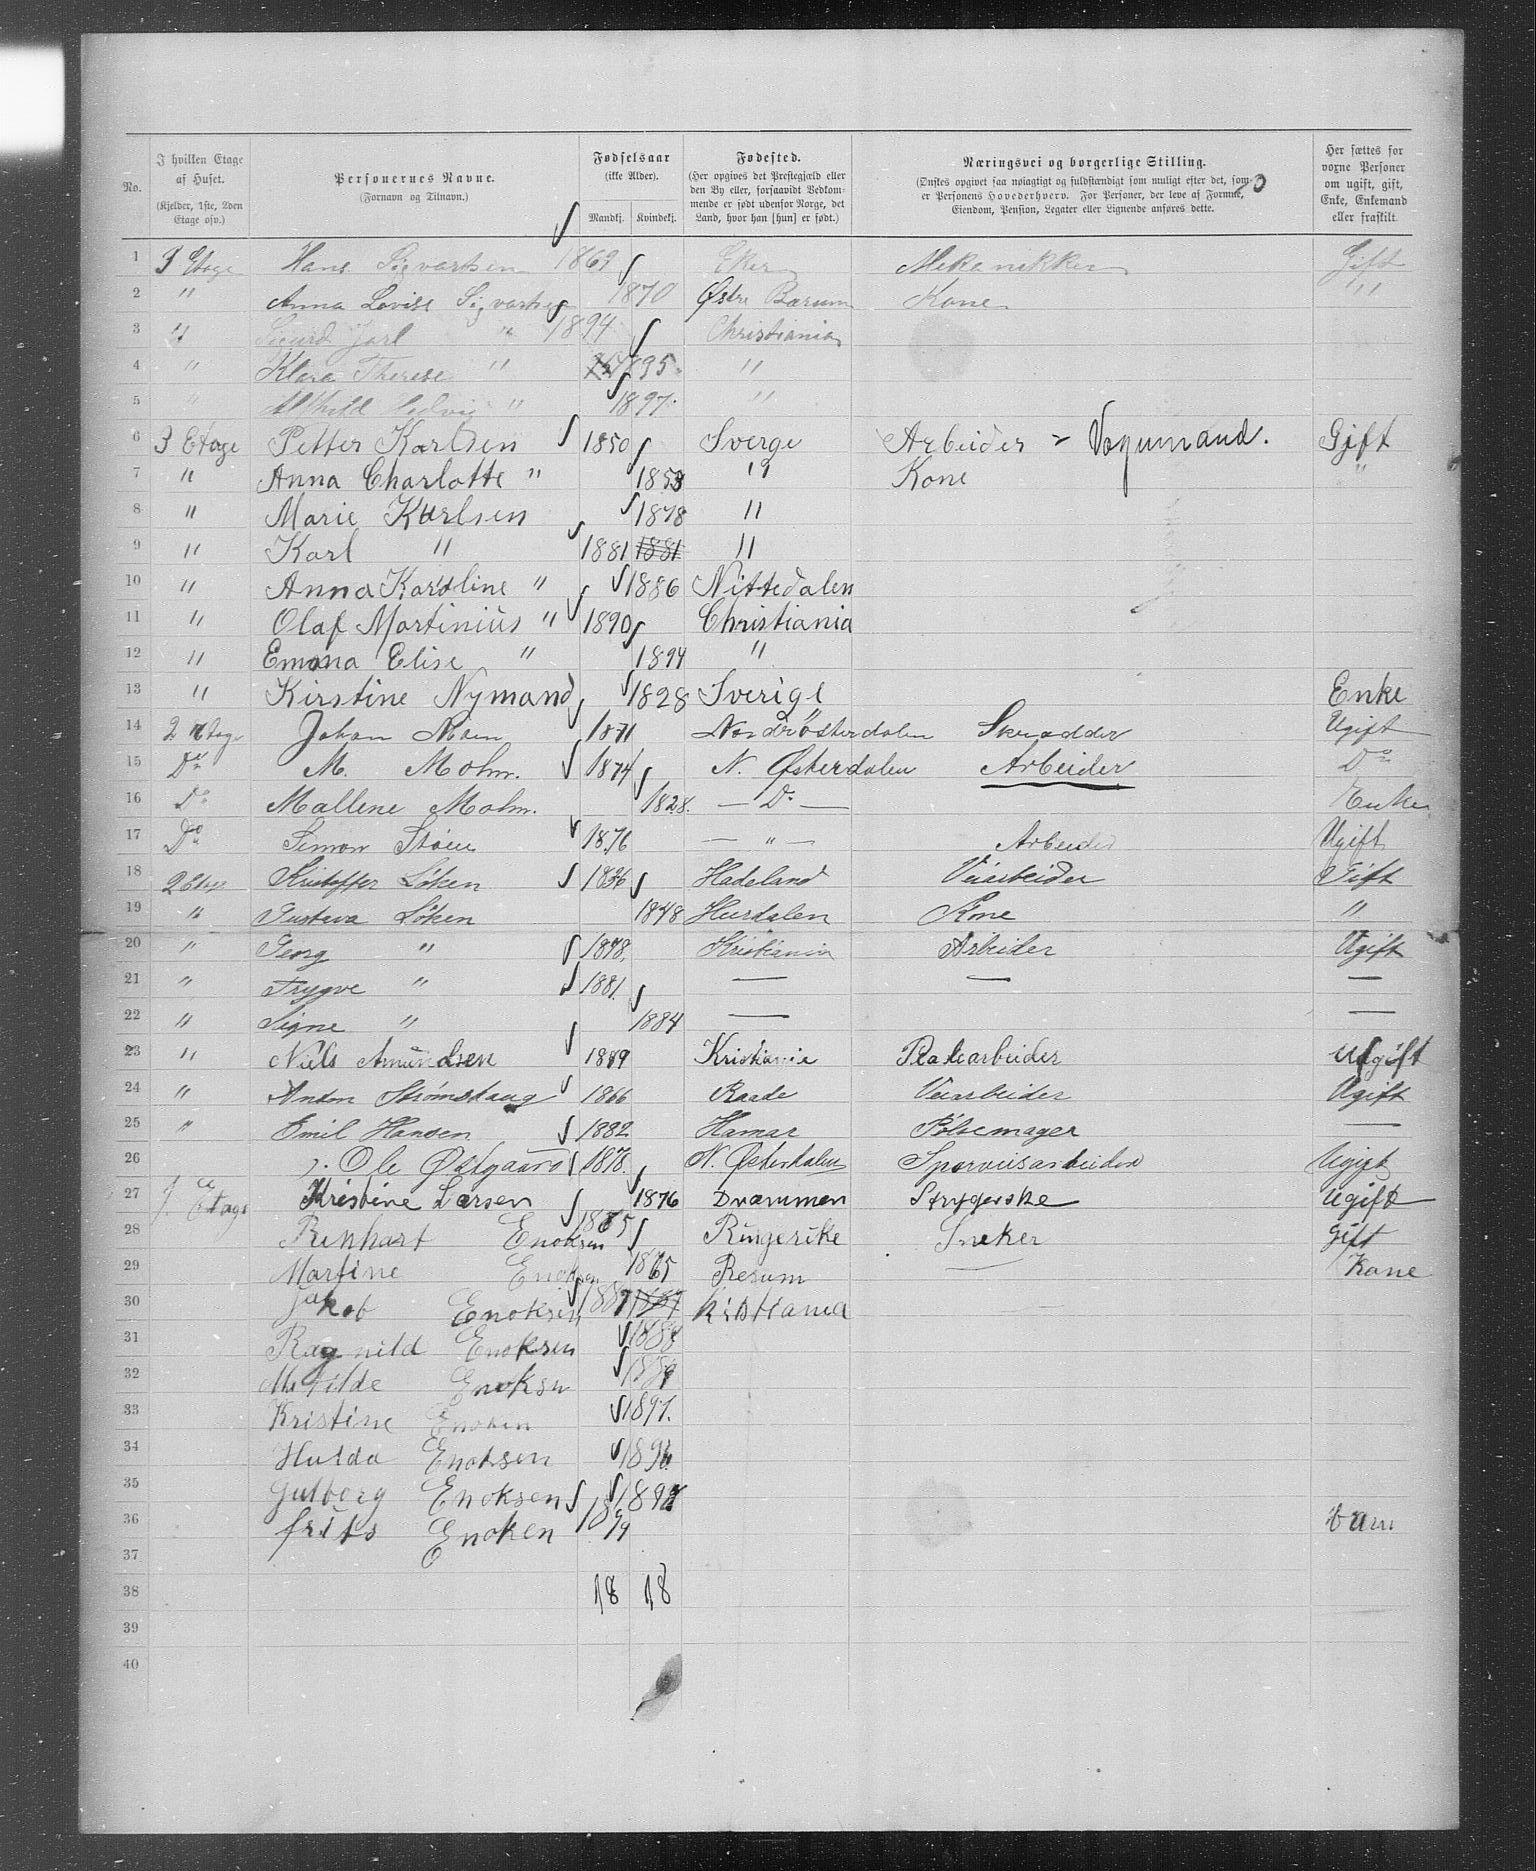 No. | I hvilken Etage af Huset. (Kjelder, 1ste, 2den Etage osv.) | Personernes Navne. (Fornavn og Tilnavn.) | Fødselsaar (ikke Alder). Mandkj. Kvindekj. | Fødested. (Her opgives det Prestegjæld eller den By eller, forsaavidt Vedkommende er født udenfor Norge, det Land, hvor han [hun] er født.) | Næringsvei og borgerlige Stilling. (Ønskes opgivet saa nøiagtigt og fuldstændigt som muligt efter det, som er Personens Hovederhverv. For Personer, der leve af Formue, Eiendom, Pension, Legater eller Lignende anføres dette. | Her sættes for voxne Personer om ugift, gift, Enke, Enkemand eller fraskilt.
1 3 Etage Hans Sigvartsen 1869 Eker Mekanikker Gift
2 " Anna Lovise Sigvartsen 1870 Østre Bærum Kone "
3 " Sigurd Jarl " 1894 Christiania
4 " Klara Therese " 1895 "
5 " Alfhild Hedvig " 1897 "
6 3 Etage Petter Karlsen 1850 Sverge Arbeider - Vognmand. Gift
7 " Anna Charlotte " 1853 " Kone "
8 " Marie Karlsen 1878 "
9 " Karl " 1881 1881 "
10 " Anna Karoline " 1886 Nittedalen
11 " Olaf Martinius " 1890 Christiania
12 " Emma Elise " 1894 "
13 " Kirstine Nymand 1828 Sverige Enke
14 2 Etage Johan Moen 1871 Nordre Østerdalen Skrædder Ugift
15 Do M. Mohn. 1874 N. Østerdalen Arbeider Do
16 Do Mallene Mohn. 1828. — Do — Enke
17 Do Simon Støen 1876 — " — Arbeider Ugift
18 2 Etage Kristoffer Løken 1836 Hadeland Veiarbeider Gift
19 " Gustava Løken 1848 Hurdalen Kone "
20 " Georg " 1878 Kristiania Arbeider Ugift
21 " Trygve " 1881 — — —
22 " Signe " 1884 — —
23 " Niels Amundsen 1889 Kristiania Ugift
24 " Anton Strømshaug 1866 Raade Veiarbeider Ugift
25 " Emil Hansen 1882 Hamar Pølsemager —
26 Ole Østgaard 1878. N. Østerdalen Sporveisarbeider Ugift
27 1 Etage Kristine Larsen 1876 Drammen Strygerske Ugift
28 Rinhart Enoksen 1865 Ringerike Sneker Gift
29 Martine Enoksen 1865 Kone
30 Jakob Enoksen 1887 1887 Kristiania
31 Ragnild Enoksen 1888
32 Matilde Enoksen 1889
33 Kristine Enoken 1891.
34 Hulda Enoksen 1896
35 Gulborg Enoksen 1898
36 frits Enoken 1899 barn
37
38 18 18
39
40